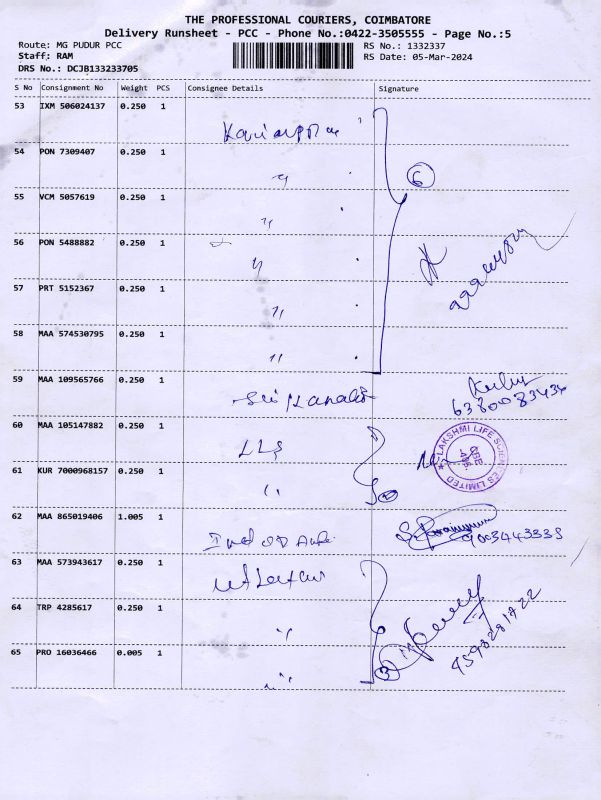 THE PROFESSIONAL COURIERS, COIMBATORE
Delivery Runsheet - PCC - Phone No.:0422-3505555 - Page No.:5
Route: MG PUDUR PCC
RS No.: 1332337
Staff: RAM
RS Date: 05-Mar-2024
DRS No.: DCJB133233705
S No Consignment No Weight PCS Consignee Details Signature
53 IXM 506024137 0.250 1
54 PON 7309407 0.250 1
6
55 VCM 5057619 0.250 1
56 PON 5488882 0.250 1
57 PRT 5152367 0.250 1
58 MAA 574530795 0.250 1
59 MAA 109565766 0.250 1
6380083434
60 MAA 105147882 0.250 1
LLS
LAKSHMI LIFE SCIENCES LIMITED
61 KUR 7000968157 0.250 1
62 MAA 865019406 1.005 1
9003443335
63 MAA 573943617 0.250 1
64 TRP 4285617 0.250 1
65 PRO 16036466 0.005 1
3